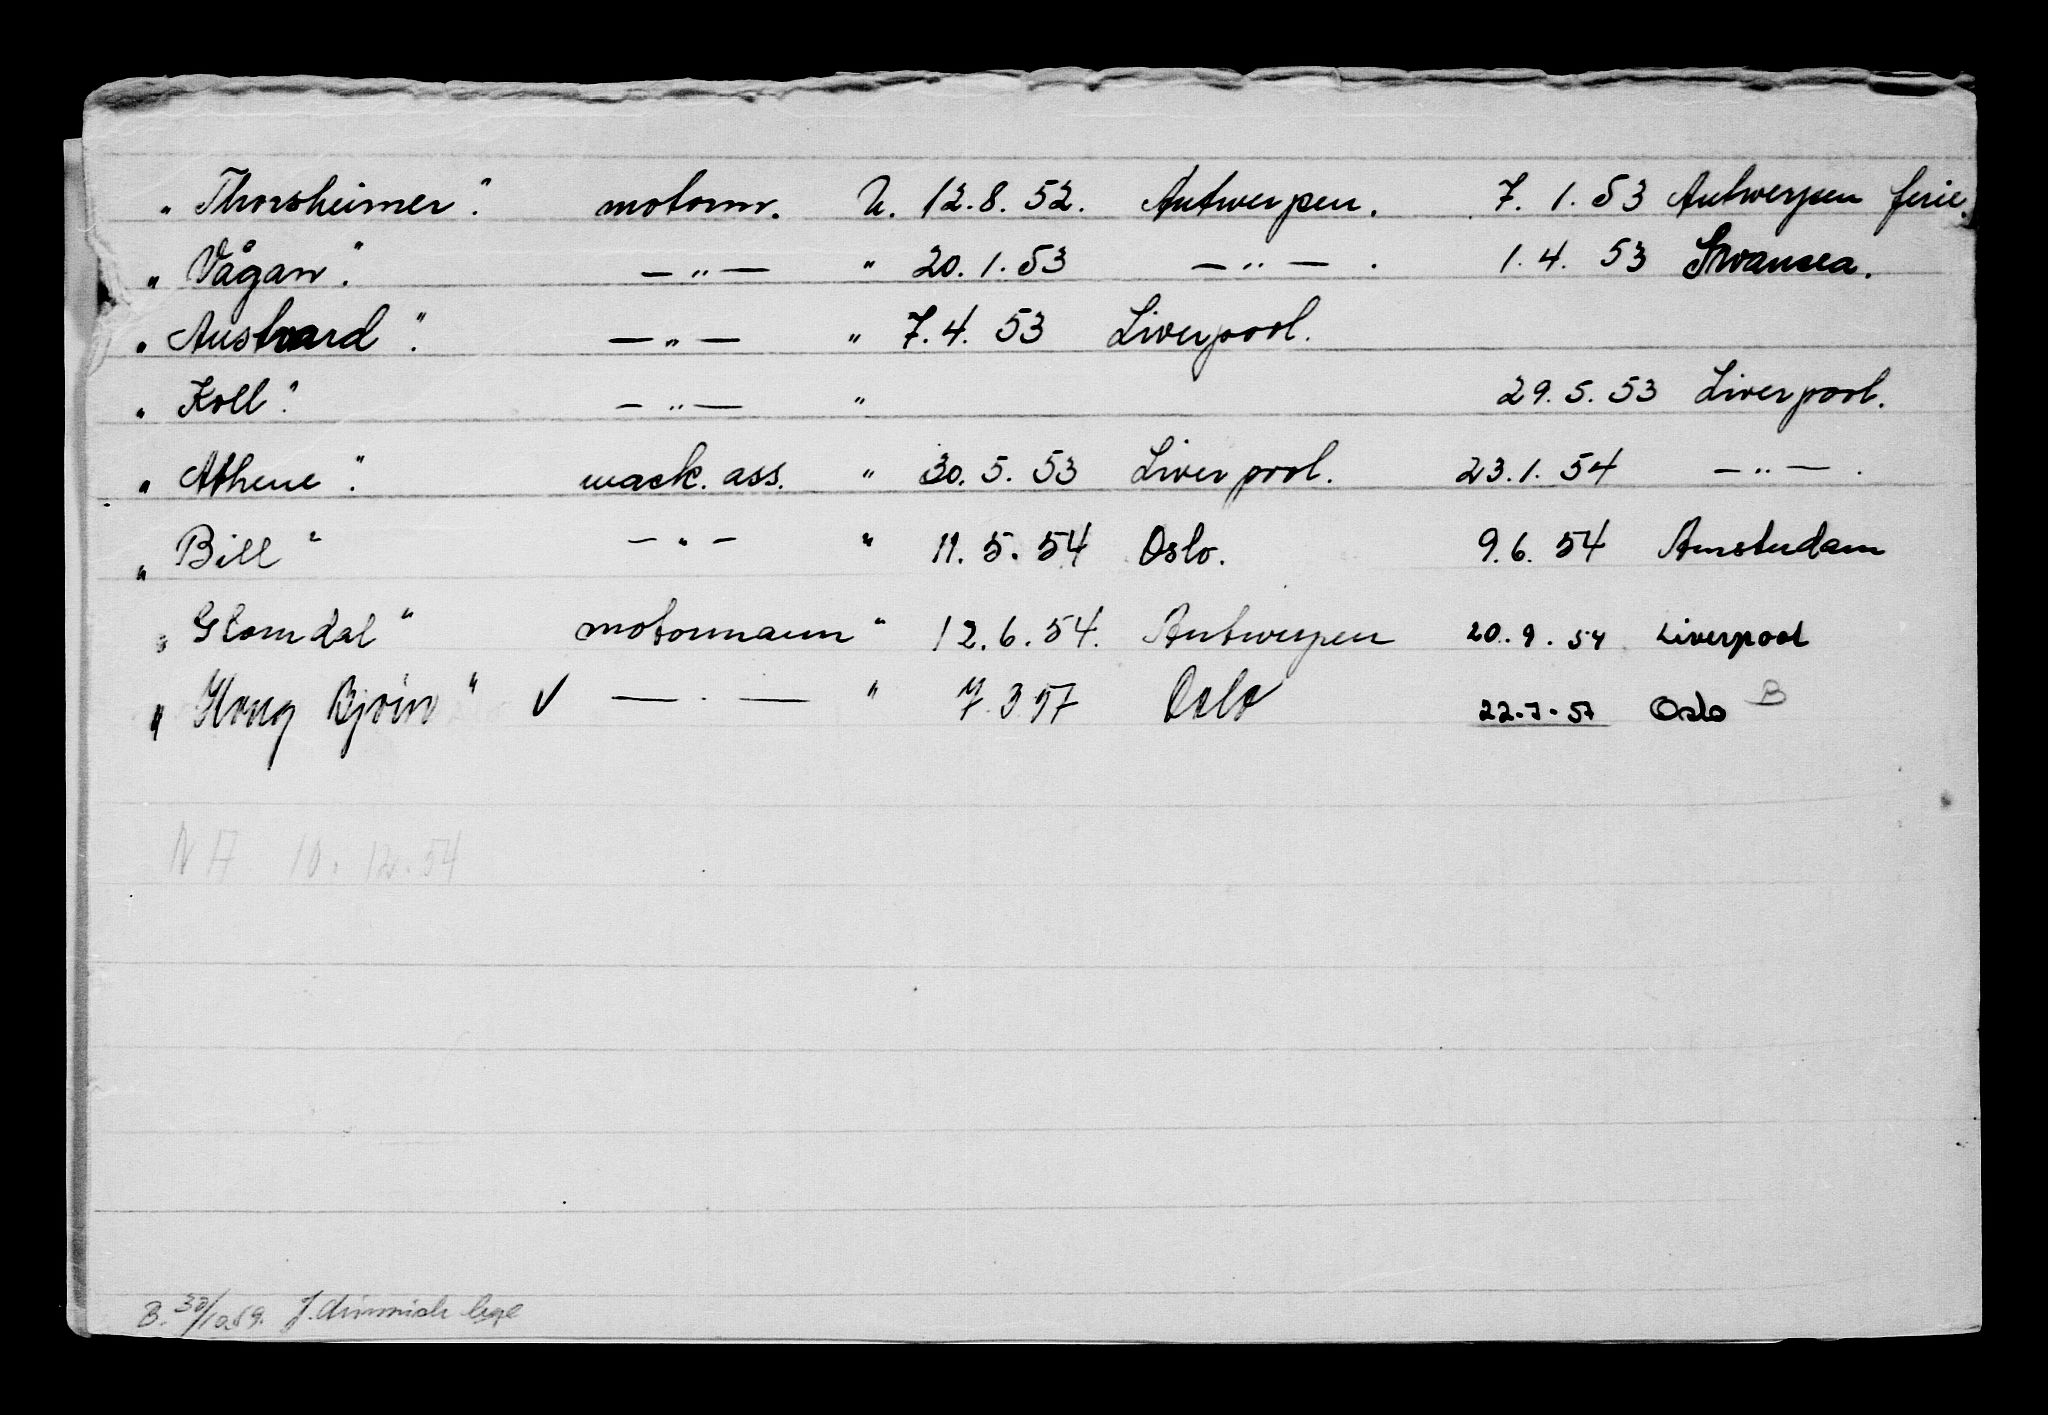 „ Thorsheimer". motorm. U. 12.8.52. Antwerpen. 7.1.53 Antwerpen ferie.
„ Vågan". — „ — " 20.1.53 — " — . 1.4.53 Swansea.
„ Austvard". — „ — " 7.4.53 Liverpool.
„ Koll". — " — " 29.5.53 Liverpool.
„ Athene". mask. ass. " 30.5.53 Liverpool. 23.1.54 — " — .
„ Bill" — " — " 11.5.54 Oslo. 9.6.54 Amsterdam
„ Glomdal" motormann " 12.6.54. Antwerpen 20.9.54 Liverpool
„ Kong Bjørn" ✓ — . — " 7.3 57 Oslo 22.7.57 Oslo B
NA 10.12.54
B. 30/10.59.